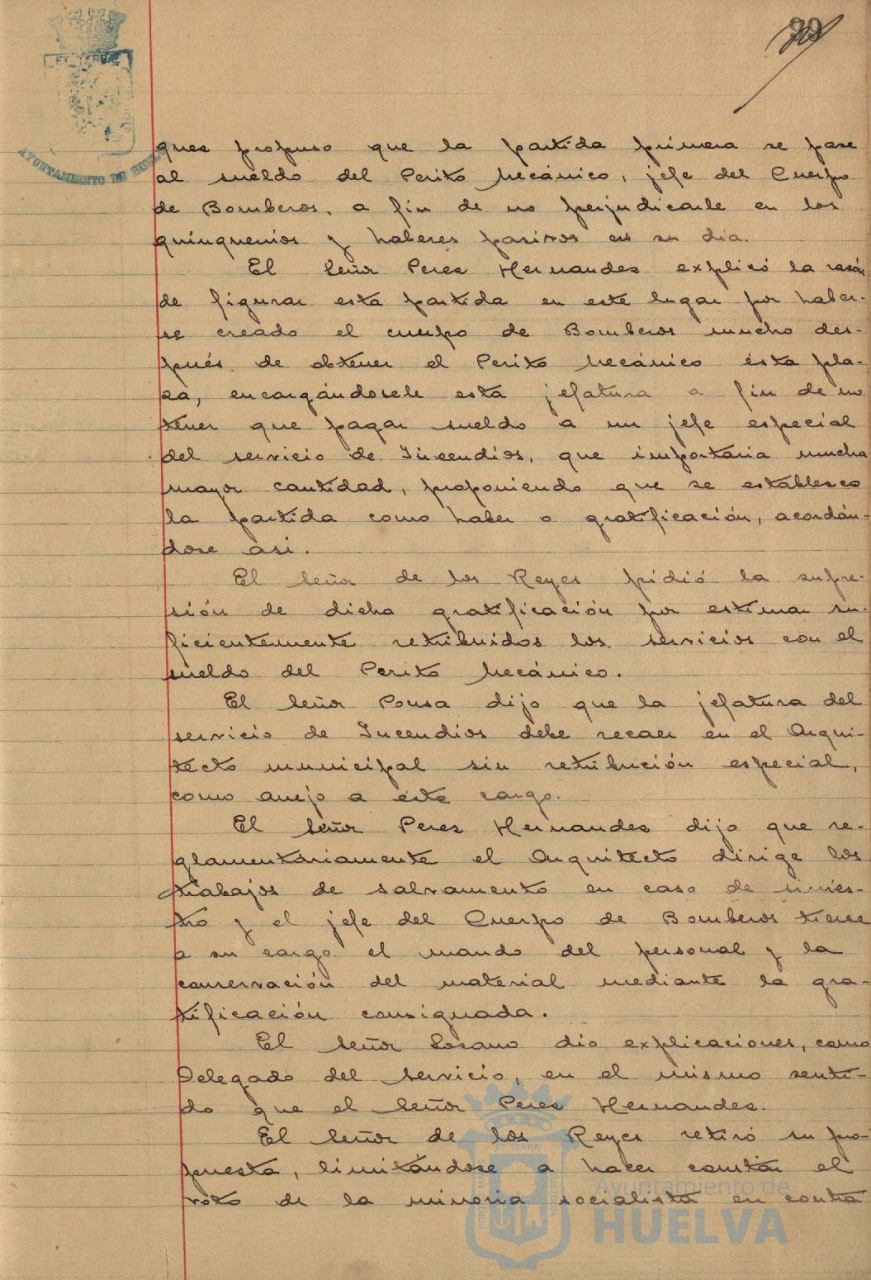 99
AYUNTAMIENTO DE HUELVA
ques propuso que la partida primera se pase
al sueldo del Perito Mecánico, jefe del Cuerpo
de Bomberos, a fin de no perjudicarle en los
quinquenios y haberes pasivos en su dia.
El Señor Peres Hernandes explicó la rasón
de figurar esta partida en este lugar por haber-
se creado el cuerpo de Bomberos mucho des-
pués de obtener el Perito Mecánico esta pla-
za, encargándosele esta jefatura a fin de no
tener que pagar sueldo a un jefe especial
del servicio de Incendios, que importaria mucha
mayor cantidad, proponiendo que se establesca
la partida como haber o gratificación, acordán-
dose asi.
El Señor de los Reyes pidió la supre-
sión de dicha gratificación por estimar su-
ficientemente retribuidos los servicios con el
sueldo del Perito Mecánico.
El Señor Pousa dijo que la jefatura del
servicio de Incendios debe recaer en el Arqui-
tecto municipal sin retribución especial,
como anejo a este cargo.
El Señor Peres Hernandes dijo que re-
glamentariamente el Arquitecto dirige los
trabajos de salvamento en caso de sinies-
tro y el jefe del Cuerpo de Bomberos tiene
a su cargo el mando del personal y la
conservación del material mediante la gra-
tificación consignada.
El Señor Losano dio explicaciones, como
Delegado del servicio, en el mismo senti-
do que el Señor Peres Hernandes.
El Señor de los Reyes retiró su pro-
puesta, limitándose a hacer constar el
voto de la minoria socialista en contra
Ayuntamiento de
HUELVA